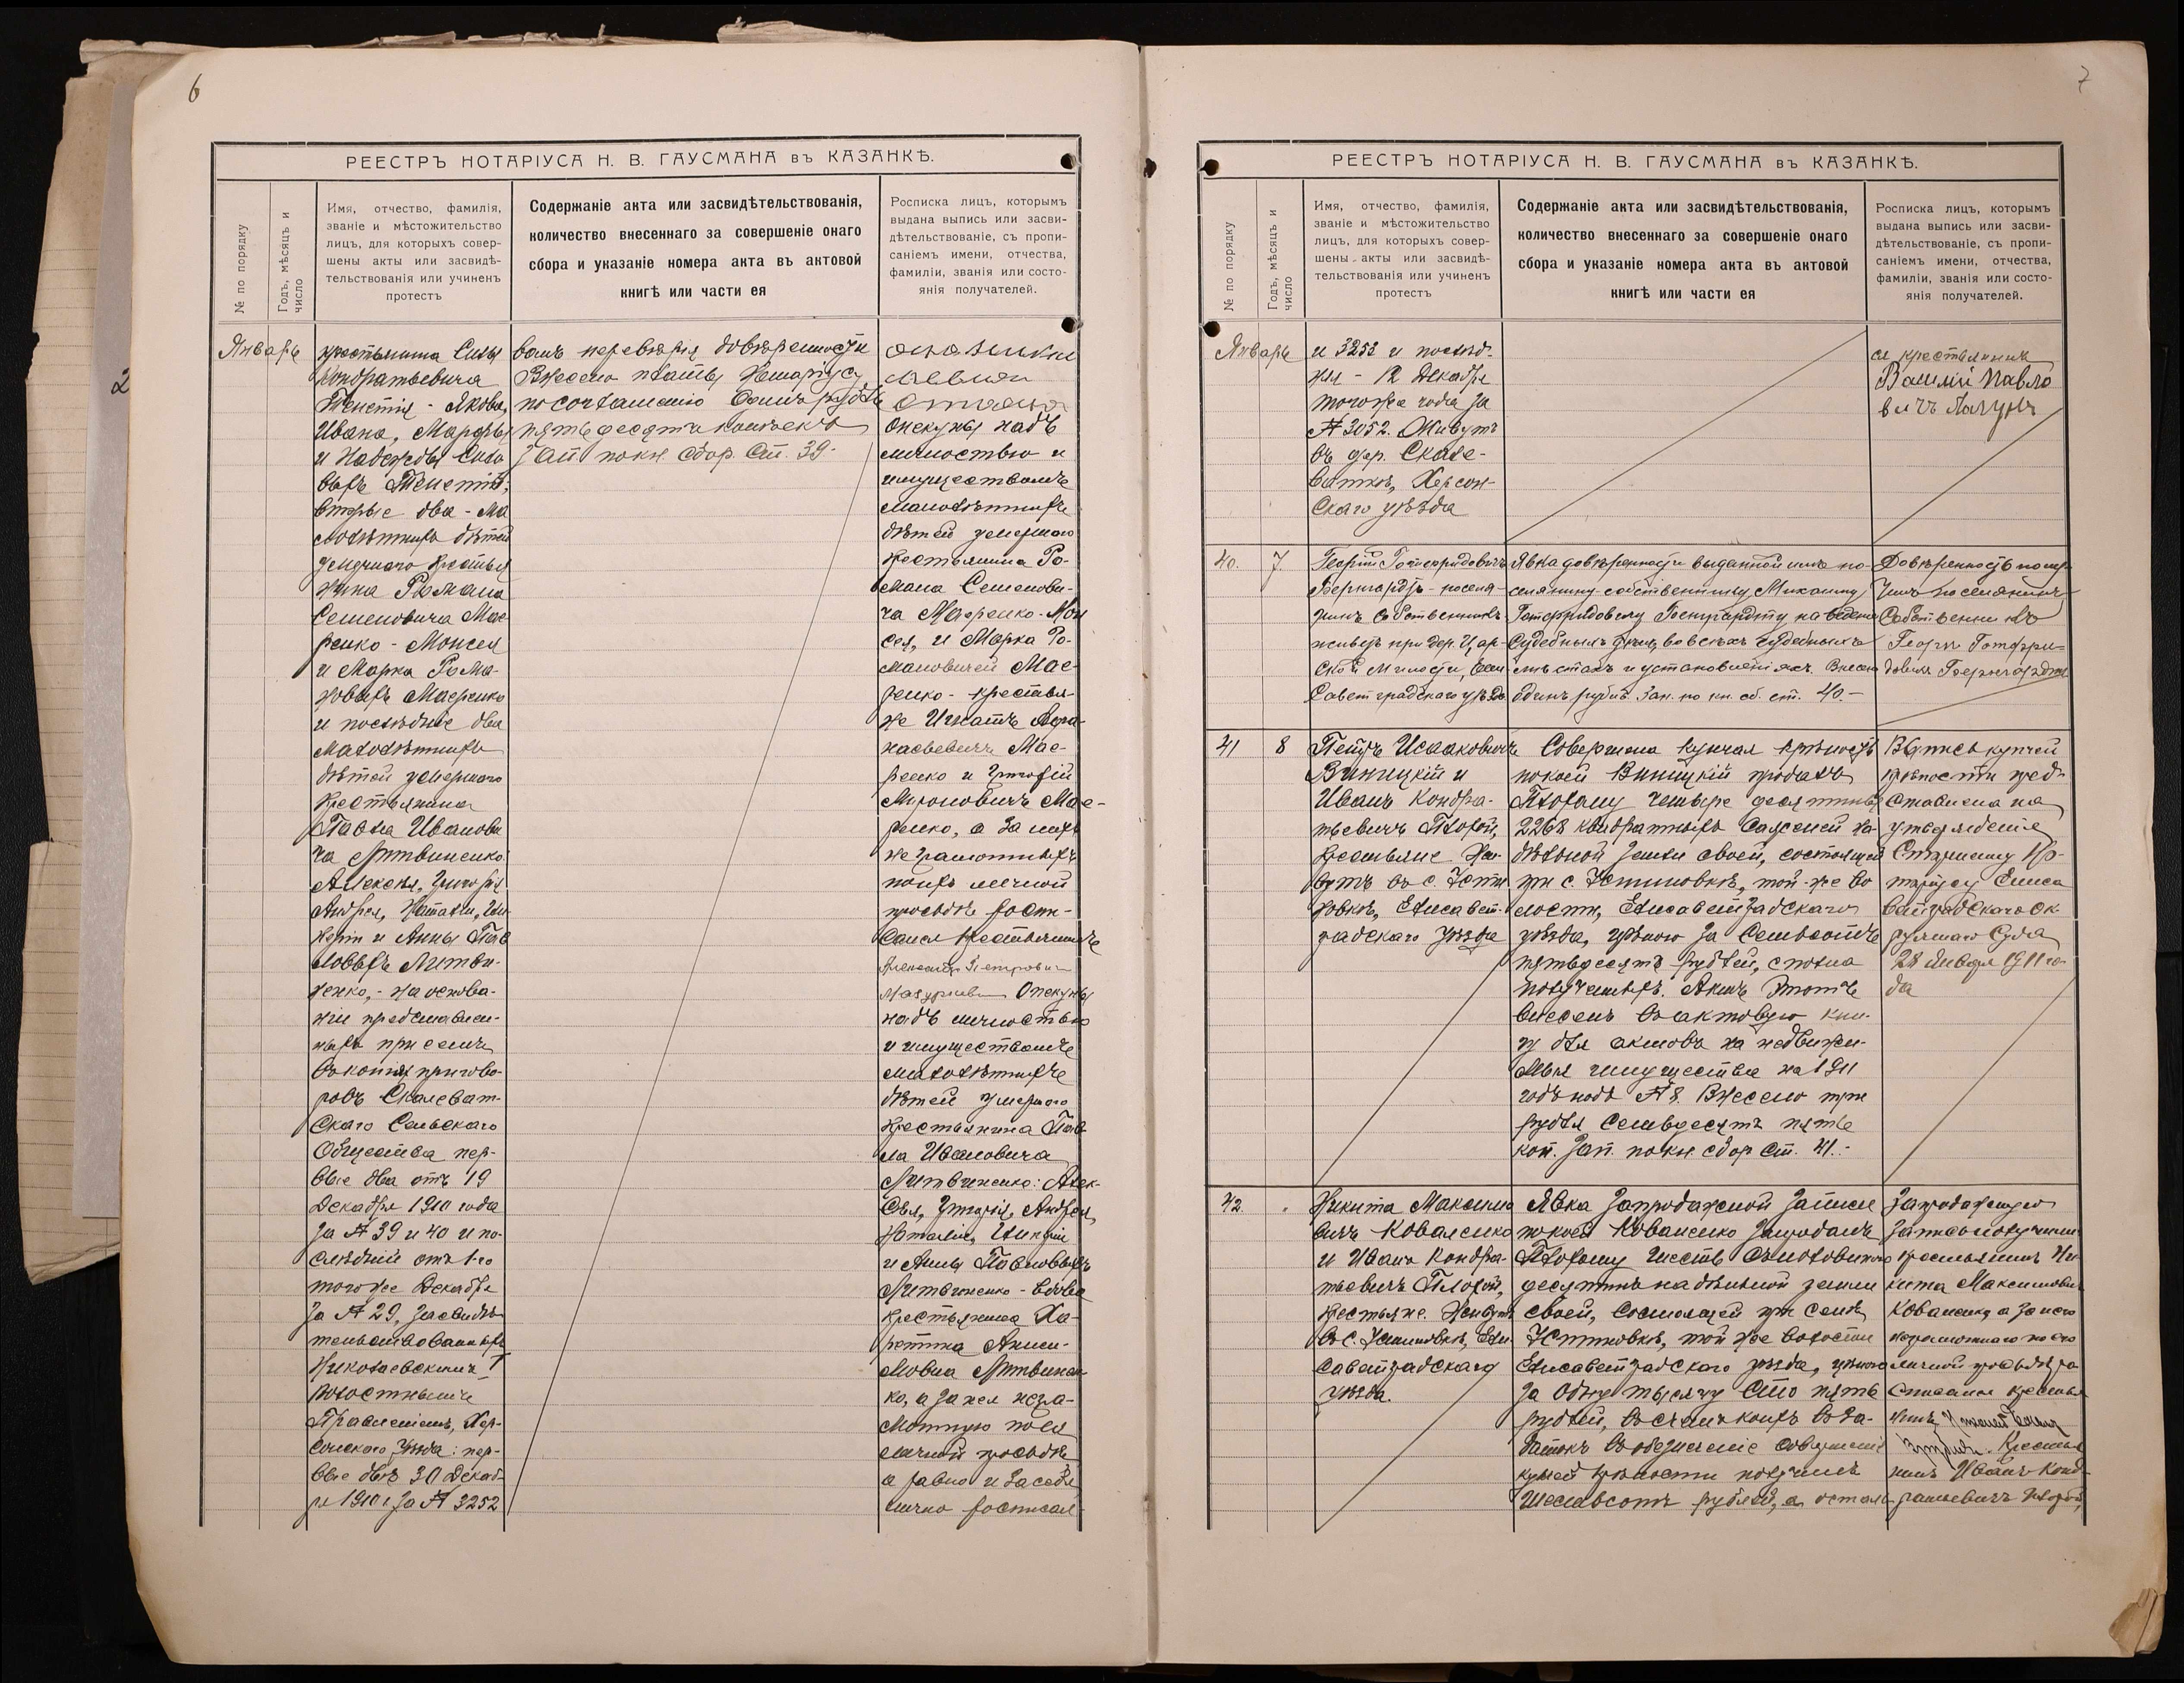 6
РЕЕСТРЪ НОТАРІУСА Н. В. ГАУСМАНА въ КАЗАНКѢ.
№ по порядку
Годъ, мѣсяцъ и
число
Имя, отчество, фамилія,
званіе и мѣстожительство
лицъ, для которыхъ совер-
шены акты или засвидѣ-
тельствованія или учиненъ
протестъ
Содержаніе акта или засвидѣтельствованія,
количество внесеннаго за совершеніе онаго
сбора и указаніе номера акта въ актовой
книгѣ или части ея
Росписка лицъ, которымъ
выдана выпись или засви-
дѣтельствованіе, съ пропи-
саніемъ имени, отчества,
фамиліи, званія или состо-
янія получателей.
Январь
крестьянина Силы
Кондратьевича
Тенетія - Якова,
Ивана, Марфы
и Надежды Сило
выхъ
вторые два - Ма
лолѣтнихъ дѣтей
умершаго крестья
нина Романа
Семеновича Мас
ренко - Моисея
и Марка Рома-
новыхъ Масренко
и послѣдніе два
малолѣтнихъ
дѣтей умершаго
крестьянина
Павла Иванови
ча Литвиненко:
Алексѣя, Григорія
Андрея, Наталіи,
и Анны Пав
ловыхъ Литви-
ненко, - на основа-
ніи представлен-
ныхъ при семъ
въ копіяхъ пригово-
ровъ Скалеват-
скаго Сельскаго
Общества пер-
вые два отъ 19
Декабря 1910 года
за № 39 и 40 и по-
слѣдній отъ 1-го
того же Декабря
за № 29, засвидѣ-
тельствованныхъ
Николаевскимъ I
Волостнымъ
Правленіемъ, Хер-
сонскаго уѣзда: пер-
вые два 30 Декаб-
ря 1910 г за № 3252
вомъ перевѣрія довѣренности
Внесено платы Нотаріусу
по соглашенію одинъ рубль
пятьдесятъ копѣекъ
Зап. по кн. сбор. ст. 39.
Опекуны надъ
личностью и
имуществомъ
малолѣтнихъ
дѣтей умершаго
крестьянина Ро-
мана Семенови-
ча Масренко - Мои
сея, и Марка Ро-
мановичей Мас-
ренко - крестья-
не Игнатъ Афа-
насьевичъ Мас-
ренко и Григорій
Мироновичъ Мас-
ренко, а за нихъ
неграмотныхъ
по ихъ личной
просьбѣ роспи-
сался крестьянинъ
Александръ Петровичъ
Опекуны
надъ личностью
и имуществомъ
малолѣтнихъ
дѣтей умершаго
крестьянина Пав
ла Ивановича
Литвиненко: Алек-
сѣя, Григорія, Андрея,
Наталіи,
и Анны Павловыхъ
Литвиненко - вдова
крестьянина Ха-
ритина Аниси-
мовна Литвинен-
ко, а за нея негра-
мотную по ея
личной просьбѣ
а равно и за себя
лично росписал-
7
РЕЕСТРЪ НОТАРІУСА Н. В. ГАУСМАНА въ КАЗАНКѢ.
№ по порядку
Годъ, мѣсяцъ и
число
Имя, отчество, фамилія,
званіе и мѣстожительство
лицъ, для которыхъ совер-
шены акты или засвидѣ-
тельствованія или учиненъ
протестъ
Содержаніе акта или засвидѣтельствованія,
количество внесеннаго за совершеніе онаго
сбора и указаніе номера акта въ актовой
книгѣ или части ея
Росписка лицъ, которымъ
выдана выпись или засви-
дѣтельствованіе, съ пропи-
саніемъ имени, отчества,
фамиліи, званія или состо-
янія получателей.
Январь
и 3253 и послѣд-
няя - 12 Декабря
того же года за
№ 3052. Живутъ
въ дер. Скале-
ваткѣ, Херсон-
скаго уѣзда
ся крестьянинъ
Василій Павло
вичъ
40. 7
Георгій Готфридовичъ
Бернгардтъ - поселя-
нинъ собственникъ
живетъ при дер. Цар-
ской Милости, Ели
саветградскаго уѣзда
Явка довѣренности выданной имъ по-
селянину-собственнику Михаилу
Готфридовичу Бернгардту на веденіе
судебныхъ дѣлъ во всѣхъ судебныхъ
мѣстахъ и установленіяхъ. Внесенъ
одинъ рубль. Зап. по кн. сб. ст. 40.-
Довѣренность полу-
чилъ поселянинъ
собственникъ
Георгъ Готфри-
довичъ Бернгардтъ
41 8
Петръ Исааковичъ
Виницкій и
Иванъ Кондра-
тьевичъ Плохой,
крестьяне. Жи-
вутъ въ с. Усти
новкѣ, Елисавет-
радскаго уѣзда
Совершена купчая крѣпость
по коей Виницкій продалъ
Плохому четыре десятины
2268 квадратныхъ саженей на-
дѣльной земли своей, состоящей
при с. Устиновкѣ, той-же во
лости, Елисаветградскаго
уѣзда, цѣною за семьсотъ
пятьдесятъ рублей, сполна
полученныхъ. Актъ этотъ
внесенъ въ актовую кни-
гу для актовъ на недвижи-
мыя имущества на 1911
годъ подъ № 8. Внесено три
рубля семьдесятъ пять
коп. Зап. по кн. сбор ст. 41.-
Выпись купчей
крѣпости пред-
ставлена на
утвержденіе
Старшему Но-
таріусу Елиса
ветградскаго Ок-
ружнаго Суда
28 Января 1911 го-
да
42
Никита Максимо
вичъ Коваленко
и Иванъ Кондра-
тьевичъ Плохой,
крестьяне. Живутъ
въ с. Устиновкѣ, Ели
саветградскаго
уѣзда.
Явка запродажной записи
по коей Коваленко запродалъ
Плохому шесть съ половиною
десятинъ надѣльной земли
своей, состоящей при селѣ
Устиновкѣ, той же волости
Елисаветградскаго уѣзда, цѣною
за одну тысячу сто пять
рублей, въ счетъ коихъ въ за-
датокъ въ обезпеченіе совершенія
купчей крѣпости получилъ
шестьсотъ рублей, а осталь-
Запродажную
запись получили
крестьянинъ Ни-
кита Максимович
Коваленко, а за него
неграмотнаго по его
личной просьбѣ ро
списался крестья
нинъ
Крестья
нинъ Иванъ Конд-
ратьевичъ Плохой,